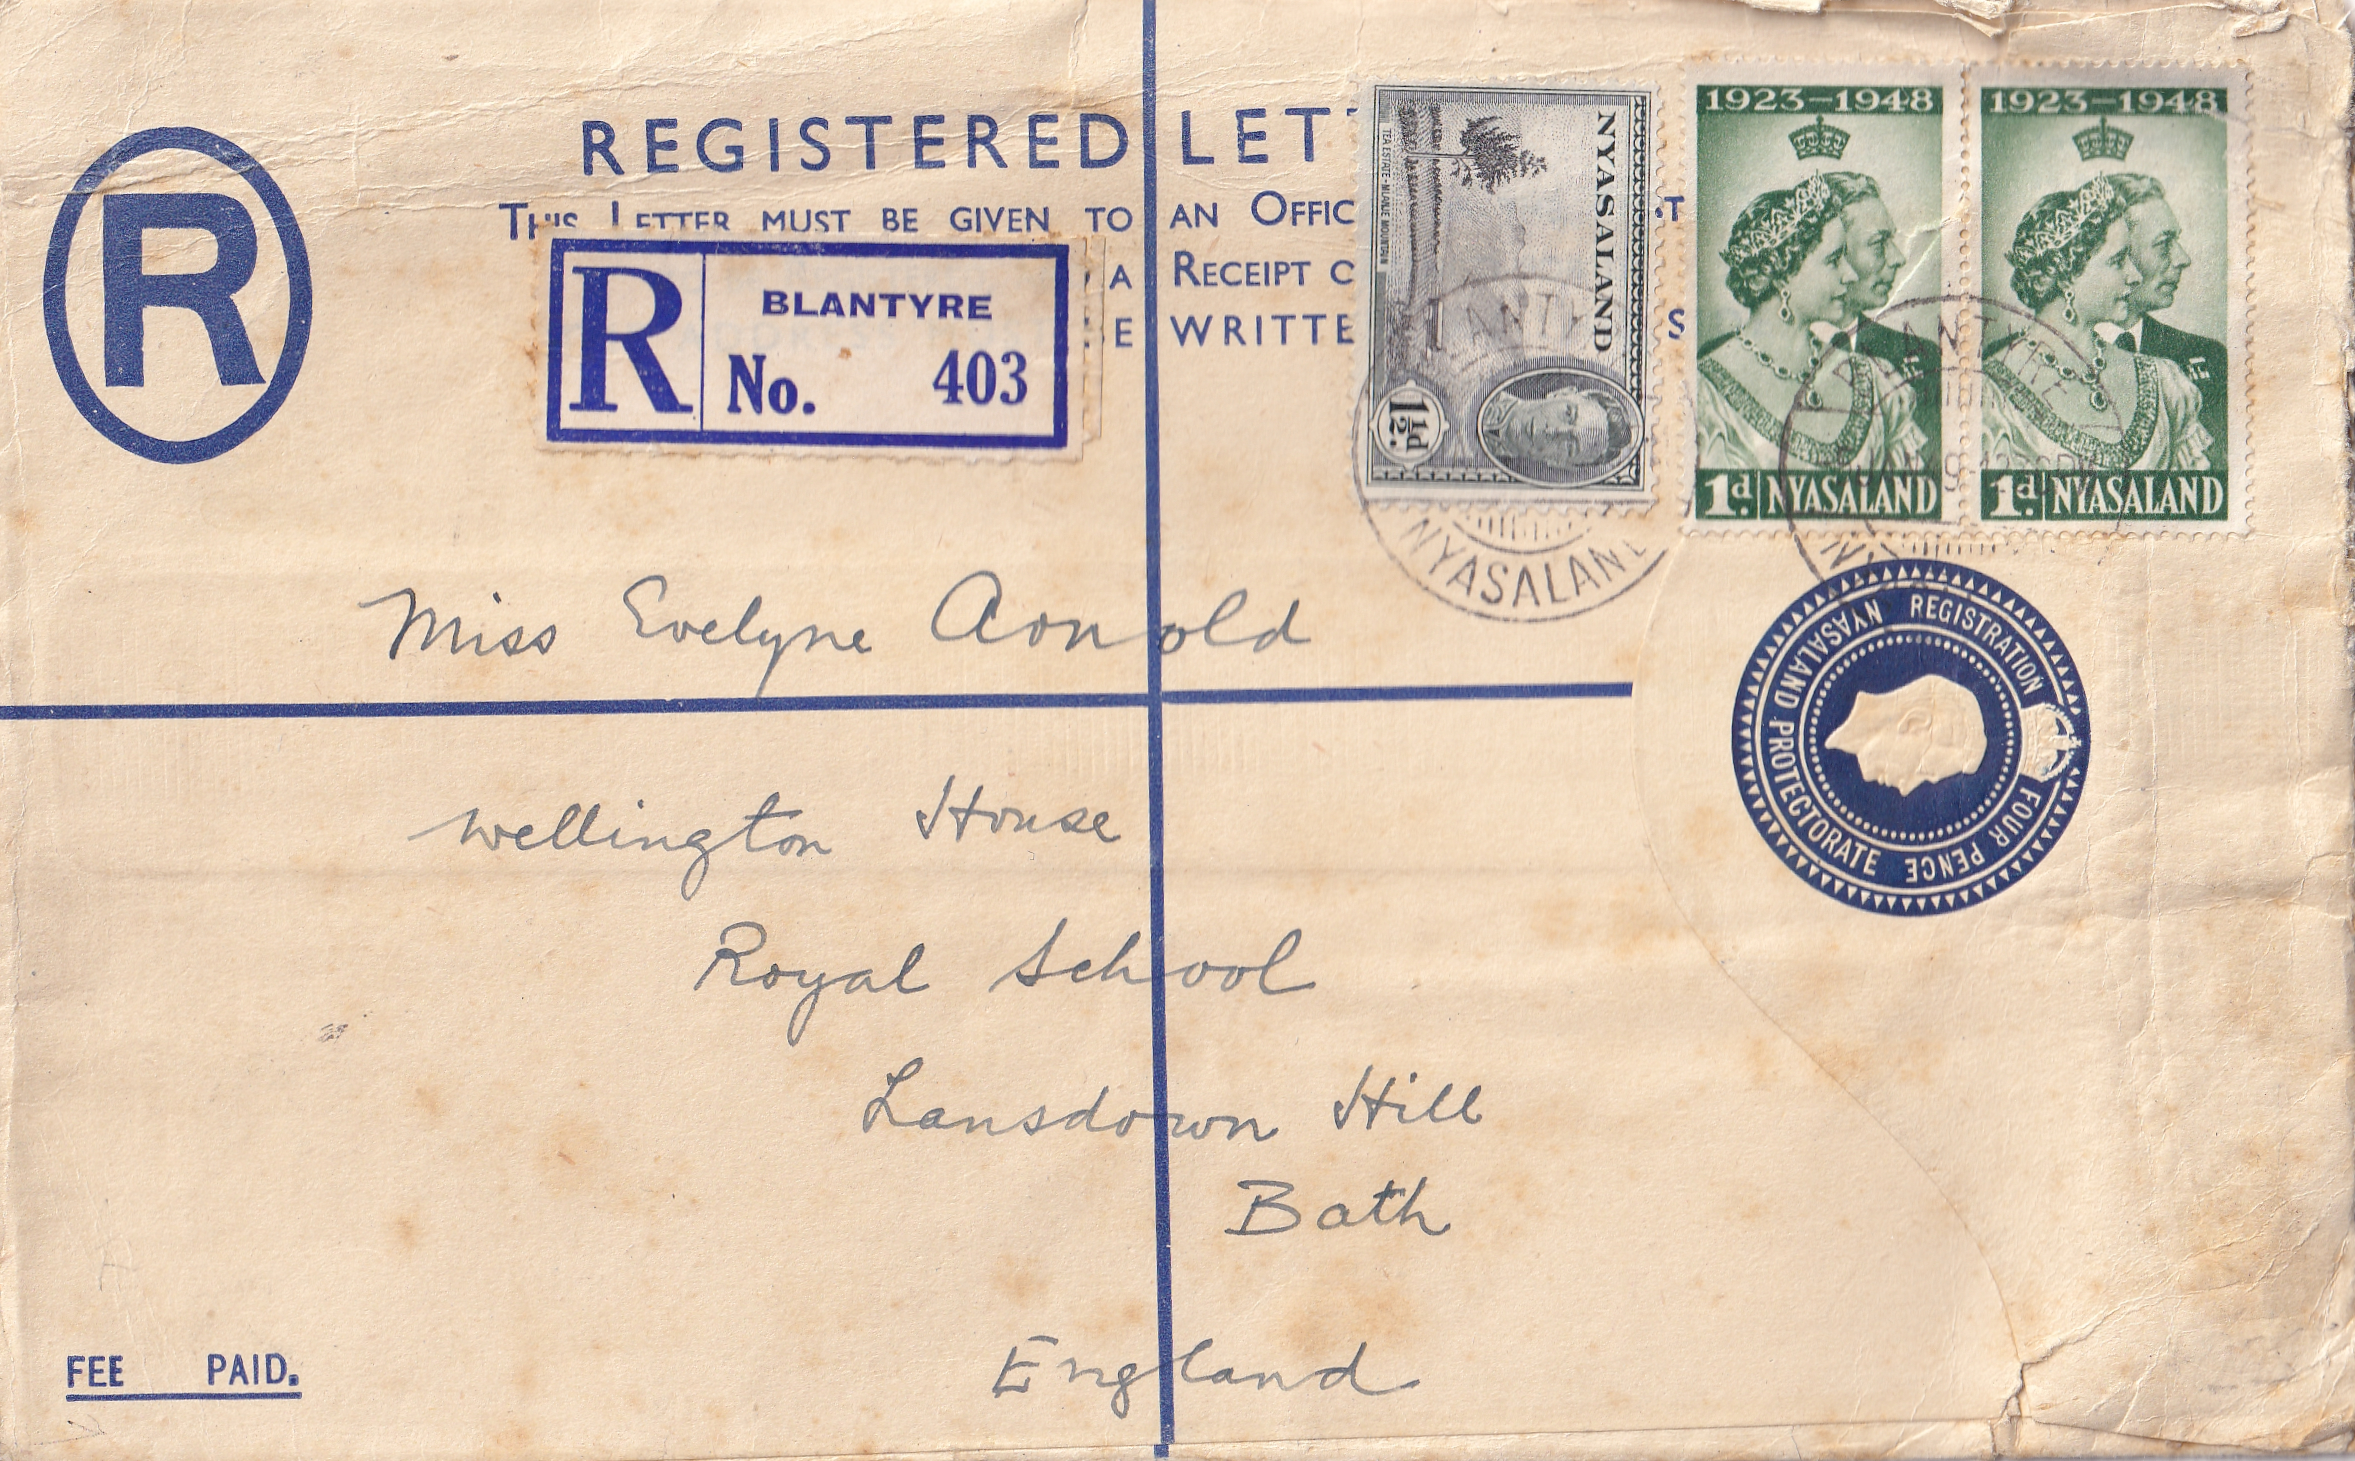 REGISTERED LET
THIS LETTER MUST BE GIVEN TO AN OFFIC
A RECEIPT
WRITTE
R
R
BLANTYRE
No. 403
NYASALAND
TEA ESTATE-MLANJE MOUNTAIN
1½d.
1923-1948
1d. NYASALAND
1923-1948
1d. NYASALAND
BLANTYRE
NYASALAND
NYASALAND PROTECTORATE
REGISTRATION FOUR PENCE
Miss Evelyne Arnold
Wellington House
Royal School
Lansdown Hill
Bath
England
FEE PAID.